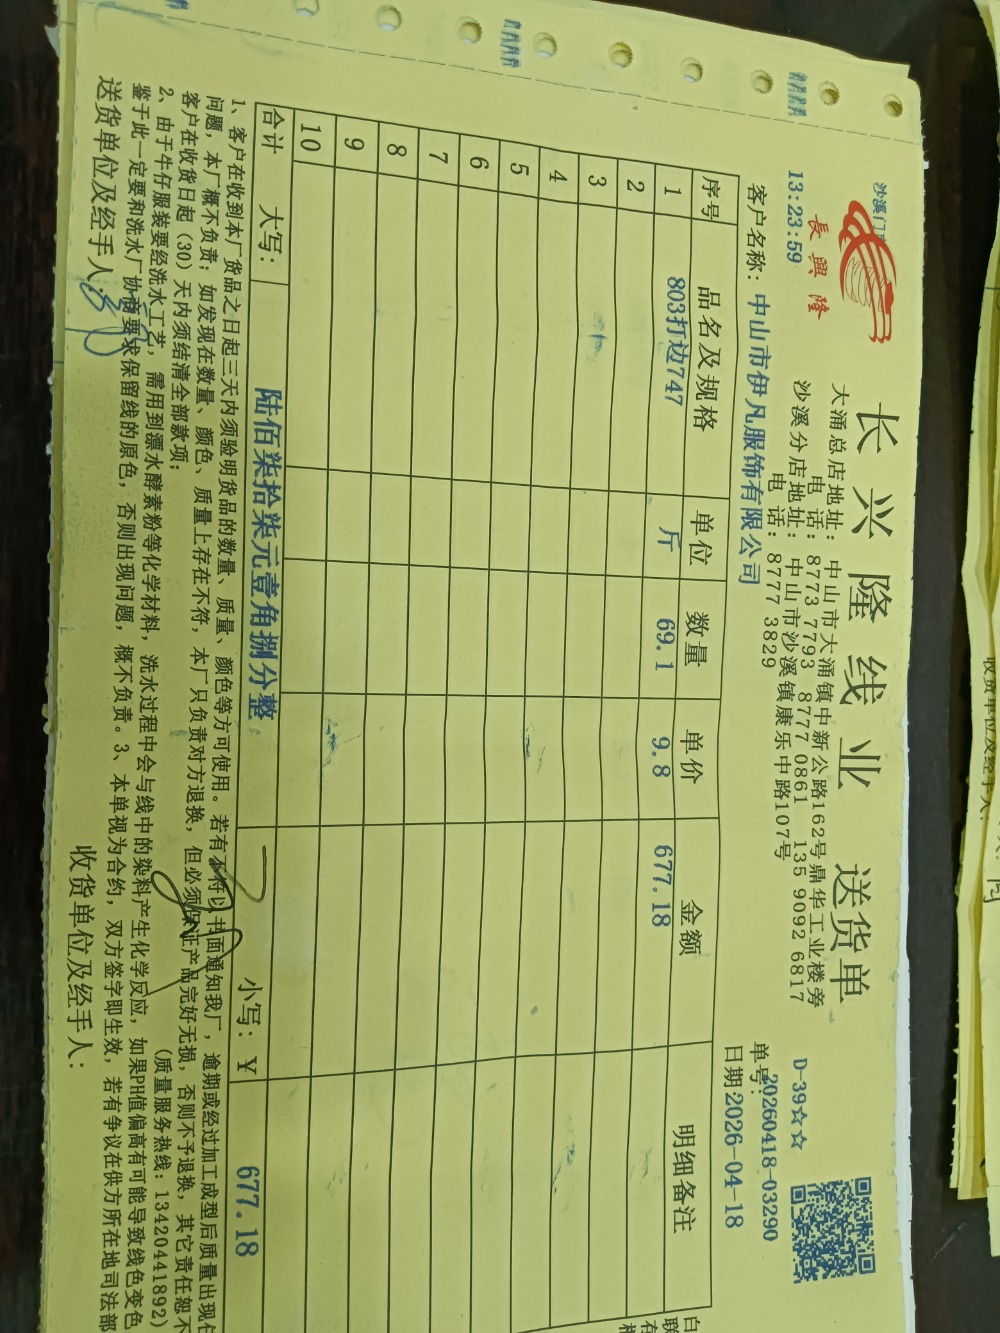 沙溪门
長興隆
13:23:59
长兴隆线业 送货单
大涌总店地址：中山市大涌镇中新公路162号鼎华工业楼旁
电话：8773 7793 8777 0861 135 9092 6817
沙溪分店地址：中山市沙溪镇康乐中路107号
电话：8777 3829
D-39☆☆
客户名称：中山市伊凡服饰有限公司
单号：20260418-03290
日期2026-04-18
序号 品名及规格 单位 数量 单价 金额 明细备注
1 803打边747 斤 69.1 9.8 677.18
2
3
4
5
6
7
8
9
10
合计 大写：陆佰柒拾柒元壹角捌分整 小写：¥ 677.18
1、客户在收到本厂货品之日起三天内须验明货品的数量、质量、颜色等方可使用。若有不符以书面通知我厂，逾期或经过加工成型后质量出现任
问题，本厂概不负责；如发现在数量、颜色、质量上存在不符，本厂只负责对方退换，但必须保证产品完好无损，否则不予退换，其它责任恕不
客户在收货日起（30）天内须结清全部款项； （质量服务热线：13420441892）
2、由于牛仔服装要经洗水工艺，需用到漂水酵素粉等化学材料，洗水过程中会与线中的染料产生化学反应，如果PH值偏高有可能导致线色变色
鉴于此一定要和洗水厂协商要求保留线的原色，否则出现问题，概不负责。3、本单视为合约，双方签字即生效，若有争议在供方所在地司法部
送货单位及经手人： 收货单位及经手人：
收货单位及经手人：